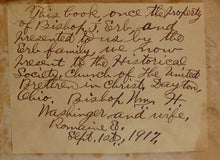 This book, once the property
of Bishop J. Erb and
presented to us by the
Erb family, we now
present to the Historical
Society, Church of the United
Brethren in Christ, Dayton,
Ohio. Bishop Wm. H.
Washinger and wife,
Romaine E.
Sept. 1st, 1917.